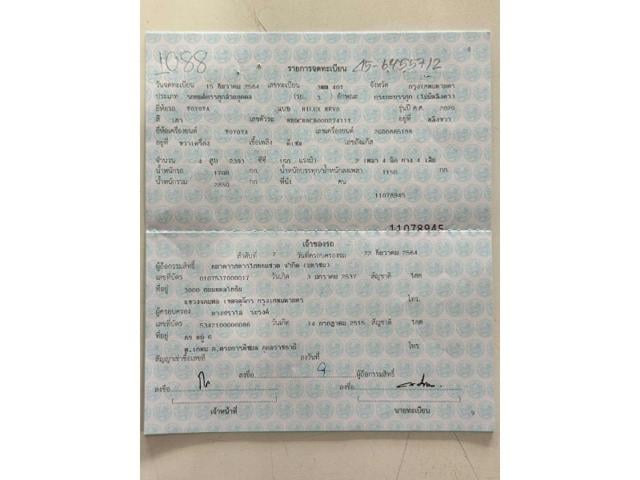 1088
รายการจดทะเบียน 15-6455712
วันจดทะเบียน 15 ธันวาคม 2564 เลขทะเบียน 401 จังหวัด กรุงเทพมหานคร
ประเภท รถยนต์บรรทุกส่วนบุคคล (รย. 3 ) ลักษณะ กระบะบรรทุก (ไม่มีหลังคา)
ยี่ห้อรถ TOYOTA แบบ HILUX REVO รุ่นปี ค.ศ. 2020
สี เทา เลขตัวรถ อยู่ที่
ยี่ห้อเครื่องยนต์ TOYOTA เลขเครื่องยนต์
อยู่ที่ ขวาเครื่อง เชื้อเพลิง ดีเซล เลขถังแก๊ส
จำนวน 4 สูบ 2393 ซีซี 150 แรงม้า 2 เพลา 4 ล้อ ยาง 4 เส้น
น้ำหนักรถ 1700 กก. น้ำหนักบรรทุก/น้ำหนักลงเพลา 1150 กก.
น้ำหนักรวม 2850 กก. ที่นั่ง คน
11078945
11078945
เจ้าของรถ
ลำดับที่ 2 วันที่ครอบครองรถ 22 ธันวาคม 2564
ผู้ถือกรรมสิทธิ์ ธนาคารทหารไทยธนชาต จำกัด (มหาชน)
เลขที่บัตร 0107537000017 วันเกิด 3 มกราคม 2537 สัญชาติ ไทย
ที่อยู่ 3000 ถนนพหลโยธิน
แขวงจอมพล เขตจตุจักร กรุงเทพมหานคร โทร.
ผู้ครอบครอง
เลขที่บัตร 5347100006086 วันเกิด 14 กรกฎาคม 2515 สัญชาติ ไทย
ที่อยู่ 69 หมู่ 6
อุบลราชธานี โทร.
สัญญาเช่าซื้อเลขที่ ลงวันที่
ลงชื่อ ผู้ถือกรรมสิทธิ์
ลงชื่อ ลงชื่อ
เจ้าหน้าที่ นายทะเบียน